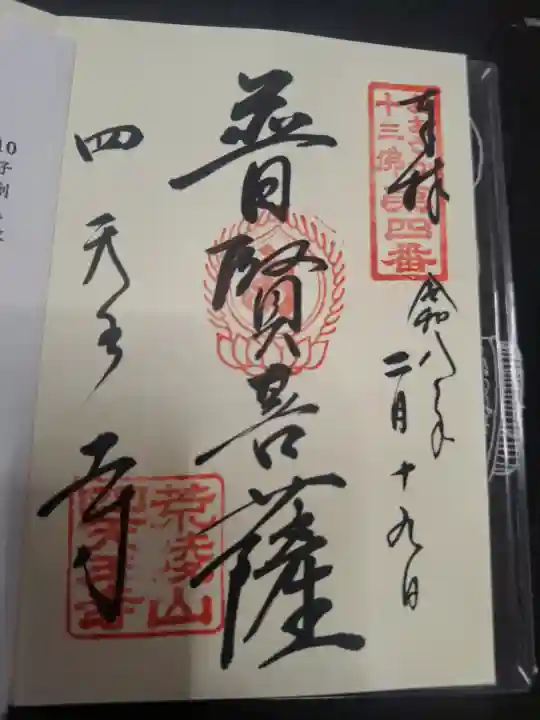 奉拝
おおさか
十三佛
第四番
令和八年
二月十九日
普賢菩薩
四天王寺
荒陵山
四天王寺
10
子